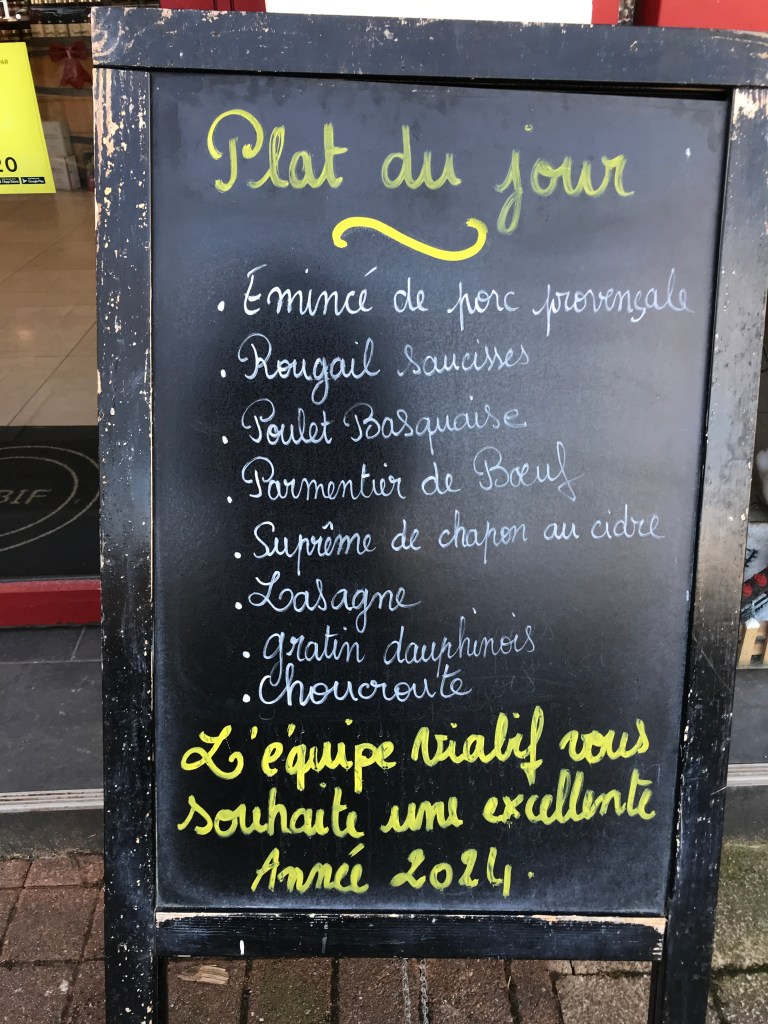 20
BIF
Plat du jour
. Émincé de porc provençale
. Rougail saucisses
. Poulet Basquaise
. Parmentier de Bœuf
. Suprême de chapon au cidre
. Lasagne
. gratin dauphinois
. choucroute
L'équipe Viabif vous
souhaite une excellente
Année 2024.